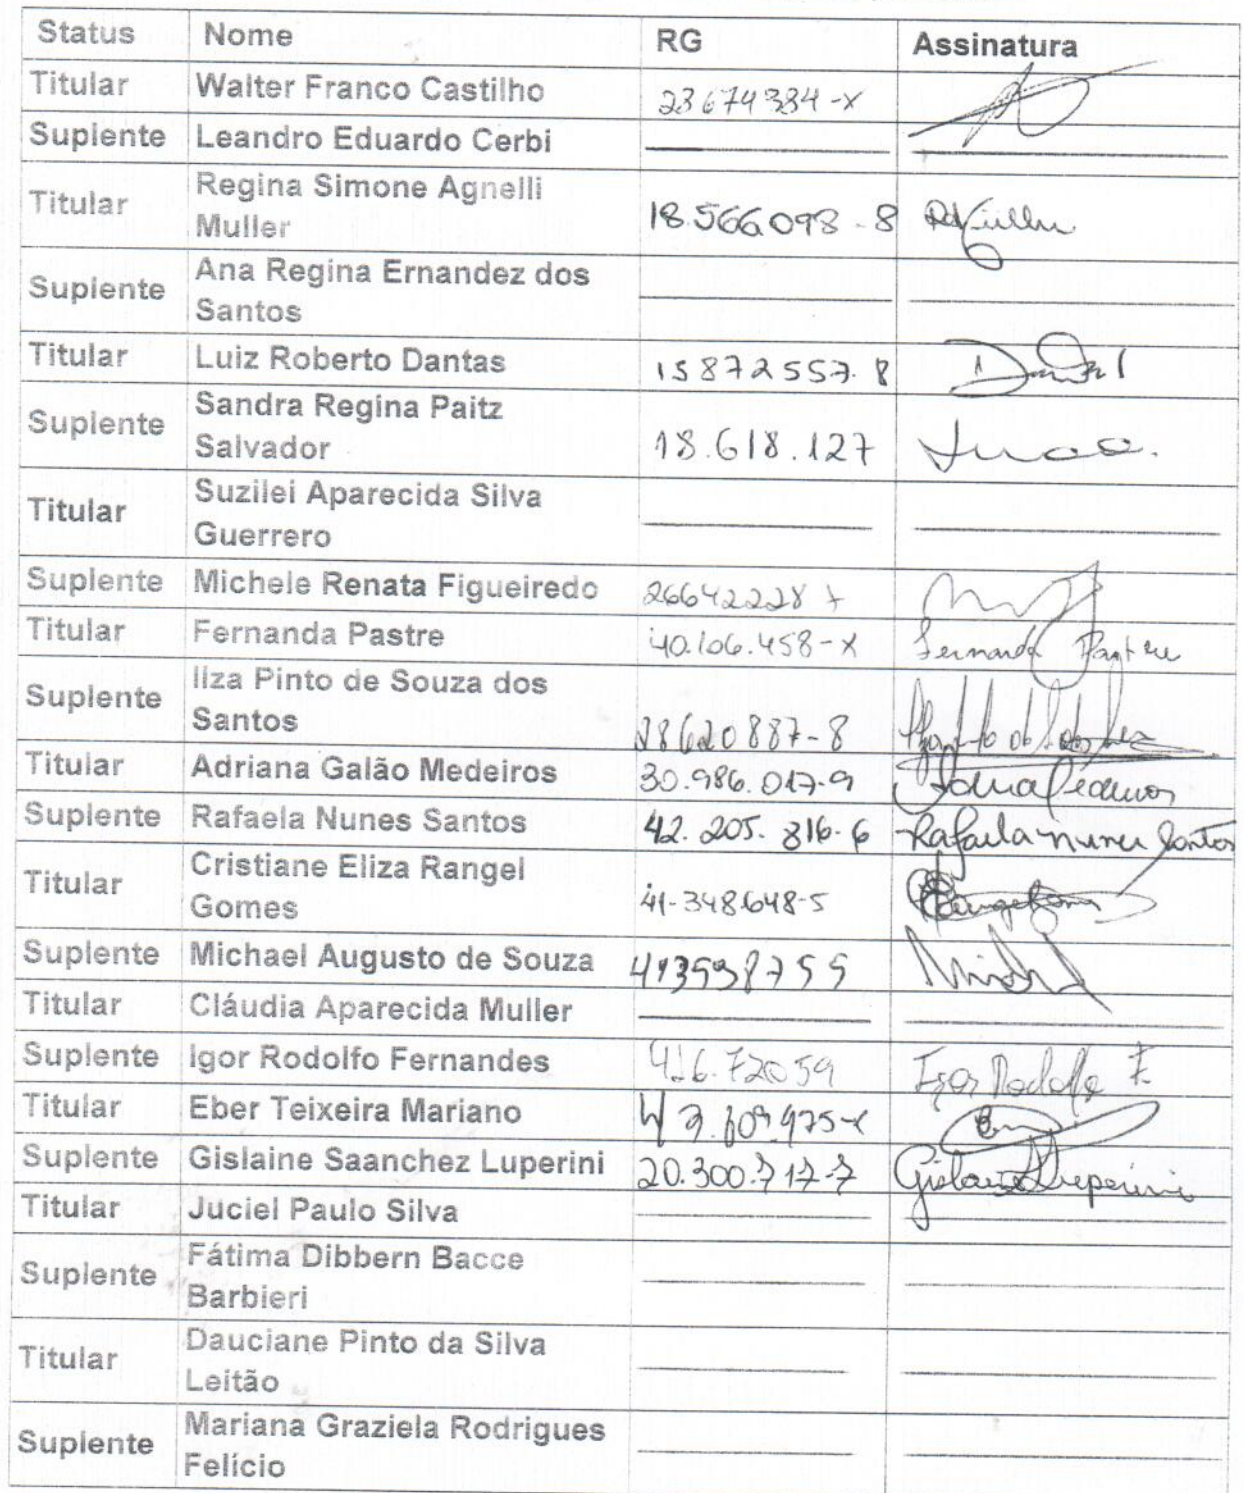 Status Nome RG Assinatura
Titular Walter Franco Castilho 23674384-X
Suplente Leandro Eduardo Cerbi
Titular Regina Simone Agnelli
Muller 18.566.098-8 RMüller
Suplente Ana Regina Ernandez dos
Santos
Titular Luiz Roberto Dantas 15872557.8
Suplente Sandra Regina Paitz
Salvador 18.618.127
Titular Suzilei Aparecida Silva
Guerrero
Suplente Michele Renata Figueiredo
Titular Fernanda Pastre 40.106.458-X Fernanda Pastre
Suplente Ilza Pinto de Souza dos
Santos 28620887-8
Titular Adriana Galão Medeiros 30.986.017-9
Suplente Rafaela Nunes Santos 42.205.816-6 Rafaela Nunes Santos
Titular Cristiane Eliza Rangel
Gomes 41-348648-5
Suplente Michael Augusto de Souza 413598755
Titular Cláudia Aparecida Muller
Suplente Igor Rodolfo Fernandes Igor Rodolfo F.
Titular Eber Teixeira Mariano
Suplente Gislaine Saanchez Luperini 20.300.717-7 Gislaine Luperini
Titular Juciel Paulo Silva
Suplente Fátima Dibbern Bacce
Barbieri
Titular Dauciane Pinto da Silva
Leitão
Suplente Mariana Graziela Rodrigues
Felício